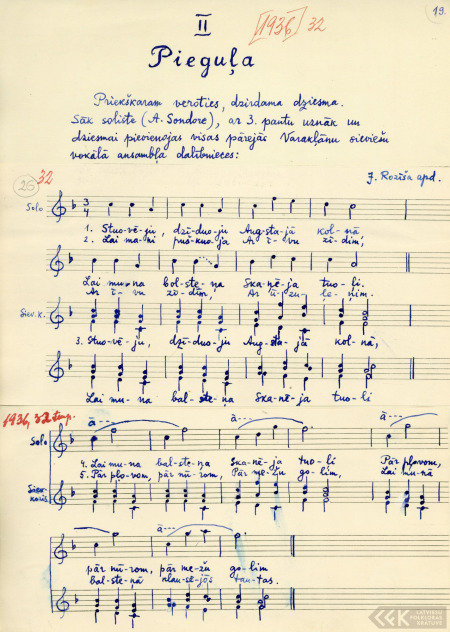 II
[1936] 32
19.
Pieguļa
Priekškaram veroties, dzirdama dziesma.
Sāk soliste (A. Sondore), ar 3. pantu uznāk un
dziesmai pievienojas visas pārējās Varakļānu sieviešu
vokālā ansambļa dalībnieces:
J. Rozīša apd.
25
32
Solo
1. Stuo-vē-ju, dzī-duo-ju Aug-sta-jā kol-nā
2. Lai ma-ni puš-kuo-ja Ar ī-vu zī-dim,
Lai mu-na bol-ste-ņa Ska-nē-ja tuo-li.
Ar ī-vu zī-dim, Ar ū-zu- le-nim.
Siev. k.
3. Stuo-vē-ju, dzī-duo-ju Aug-sta-jā kol-nā,
Lai mu-na bal-ste-ņa Ska-nē-ja tuo-li
1936, 32
Solo
ā--- ā---
4. Lai mu-na bal-ste-ņa Ska-nē-ja tuo-li Pār pļovom,
5. Pār pļo-vom, pār nū-rom, Pār me-žu go-lim, Lai mu-nā
Siev-
koris
ā--- ā---
pār nū-rom, pār me-žu go-lim
bal-ste-nā tau-tas.
LATVIEŠU
FOLKLORAS
KRĀTUVE